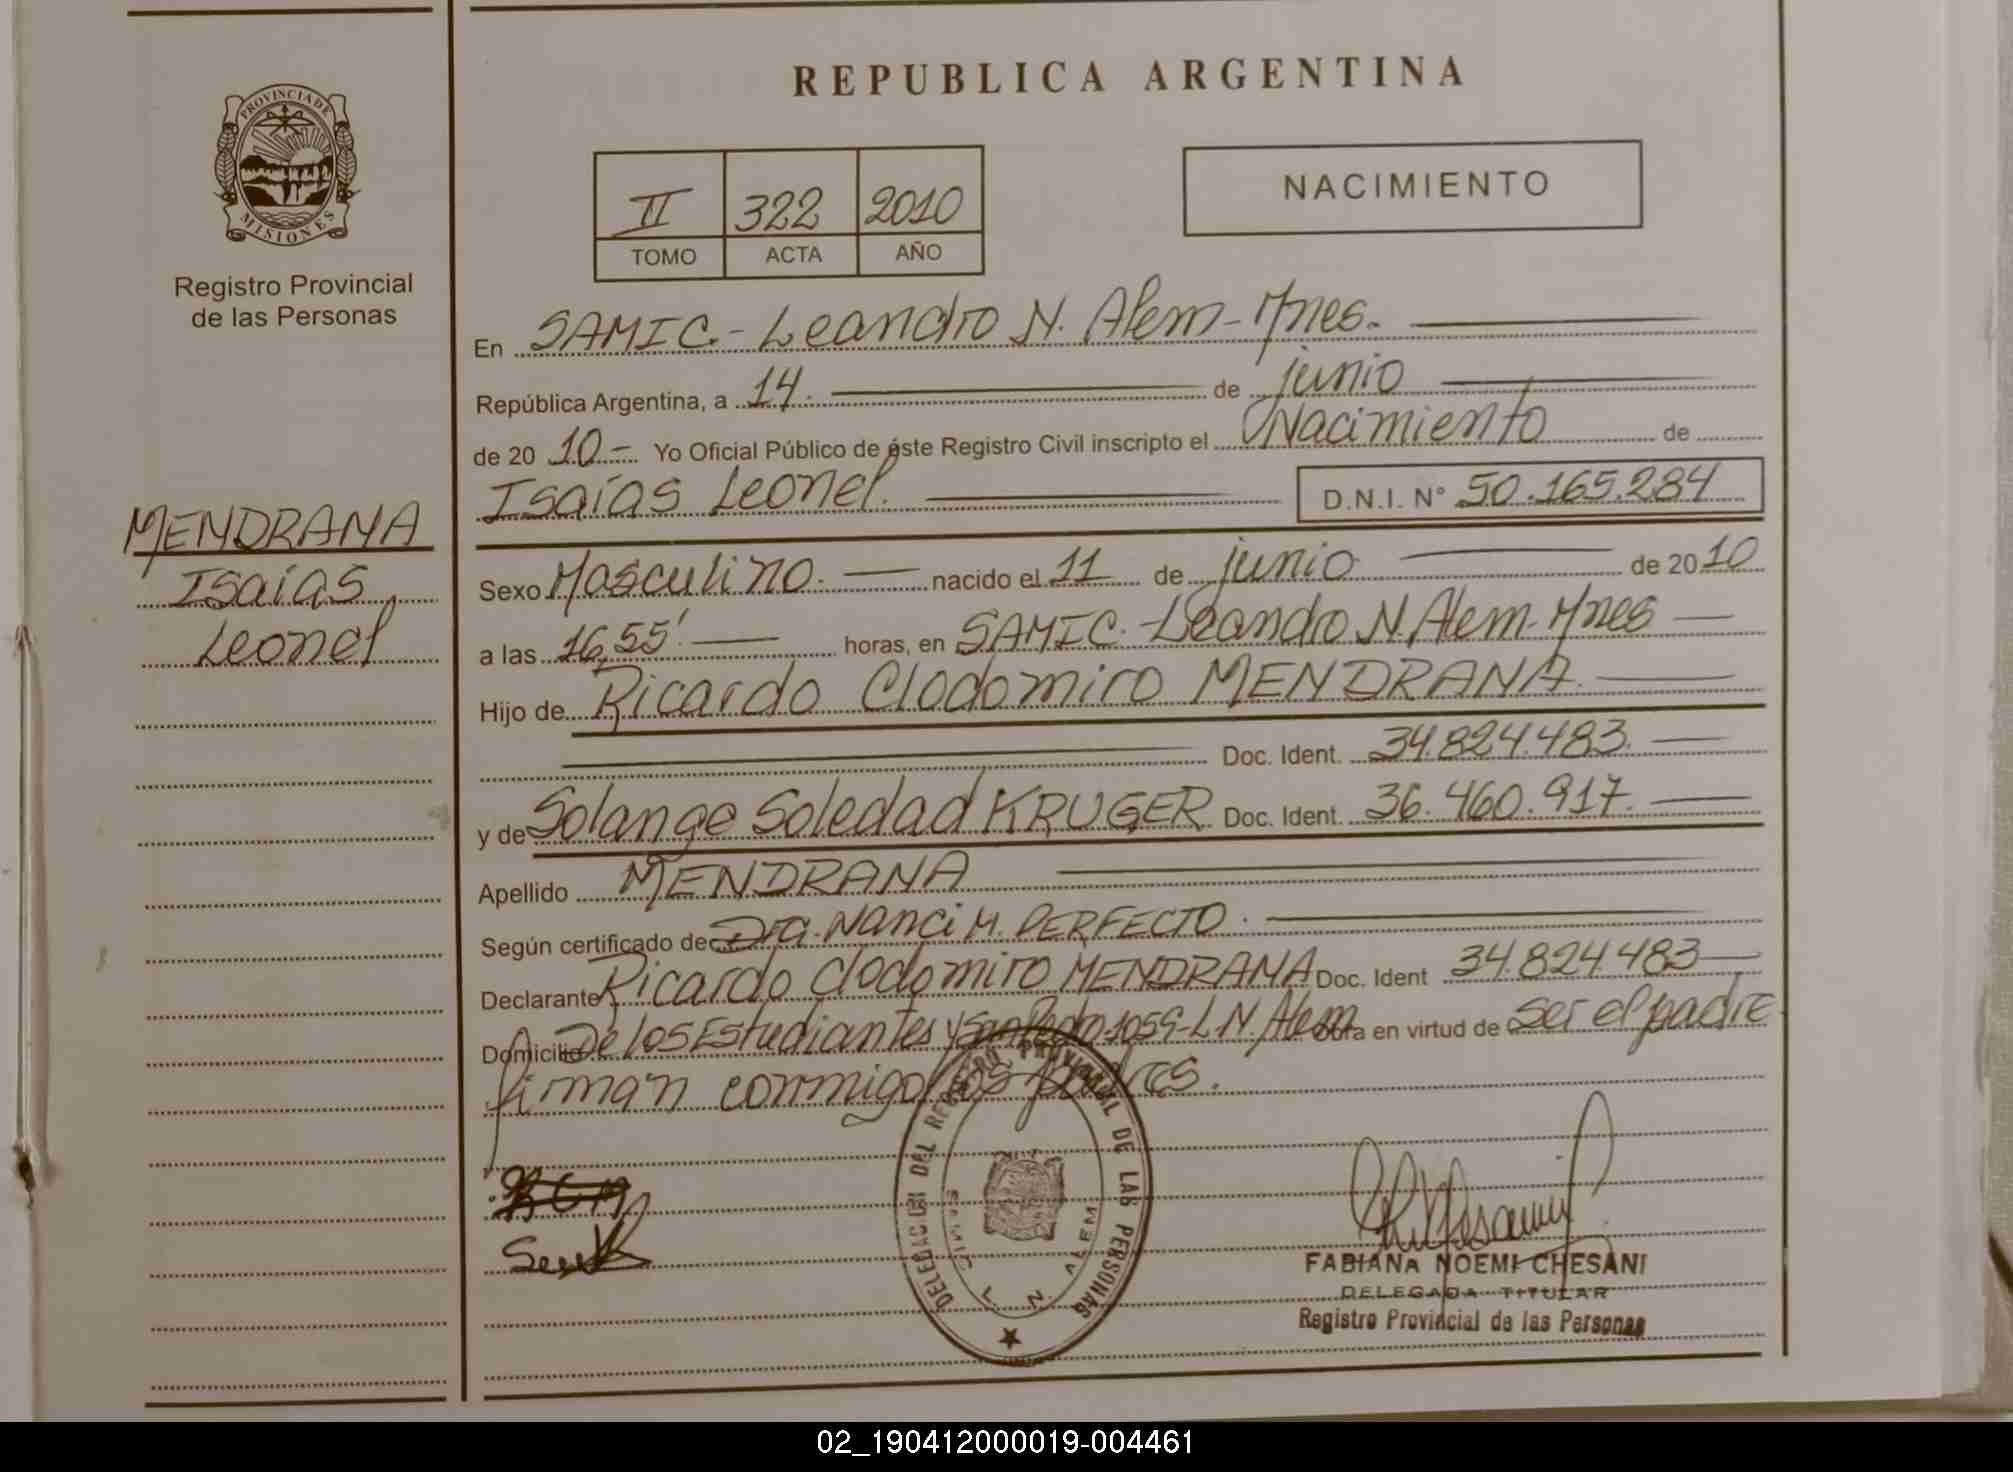 REPUBLICA ARGENTINA
PROVINCIA DE
MISIONES
Registro Provincial
de las Personas
II 322 2010
TOMO ACTA AÑO
NACIMIENTO
En SAMIC.- Leandro N. Alem - Mnes.
República Argentina, a 14. de junio
de 20 10.- Yo Oficial Público de éste Registro Civil inscripto el Nacimiento de
Isaías Leonel. D.N.I. N° 50.165.284
MENDRANA
Isaías
Leonel
Sexo Masculino. nacido el 11 de junio de 20 10
a las 16,55' horas, en SAMIC.- Leandro N. Alem - Mnes
Hijo de Ricardo Clodomiro MENDRANA.
Doc. Ident. 34.824.483.
y de Solange Soledad KRUGER Doc. Ident. 36.460.917.
Apellido MENDRANA
Según certificado de Dra. Nanci M. PERFECTO.
Declarante Ricardo Clodomiro MENDRANA Doc. Ident 34.824.483
Domicilio De los Estudiantes y San Pedro 1059 - L.N. Alem Obra en virtud de ser el padre.
firman conmigo los padres.
DELEGACION DEL REGISTRO PROVINCIAL DE LAS PERSONAS
SAMIC L. N. ALEM
FABIANA NOEMI CHESANI
DELEGADA TITULAR
Registro Provincial de las Personas
02_190412000019-004461